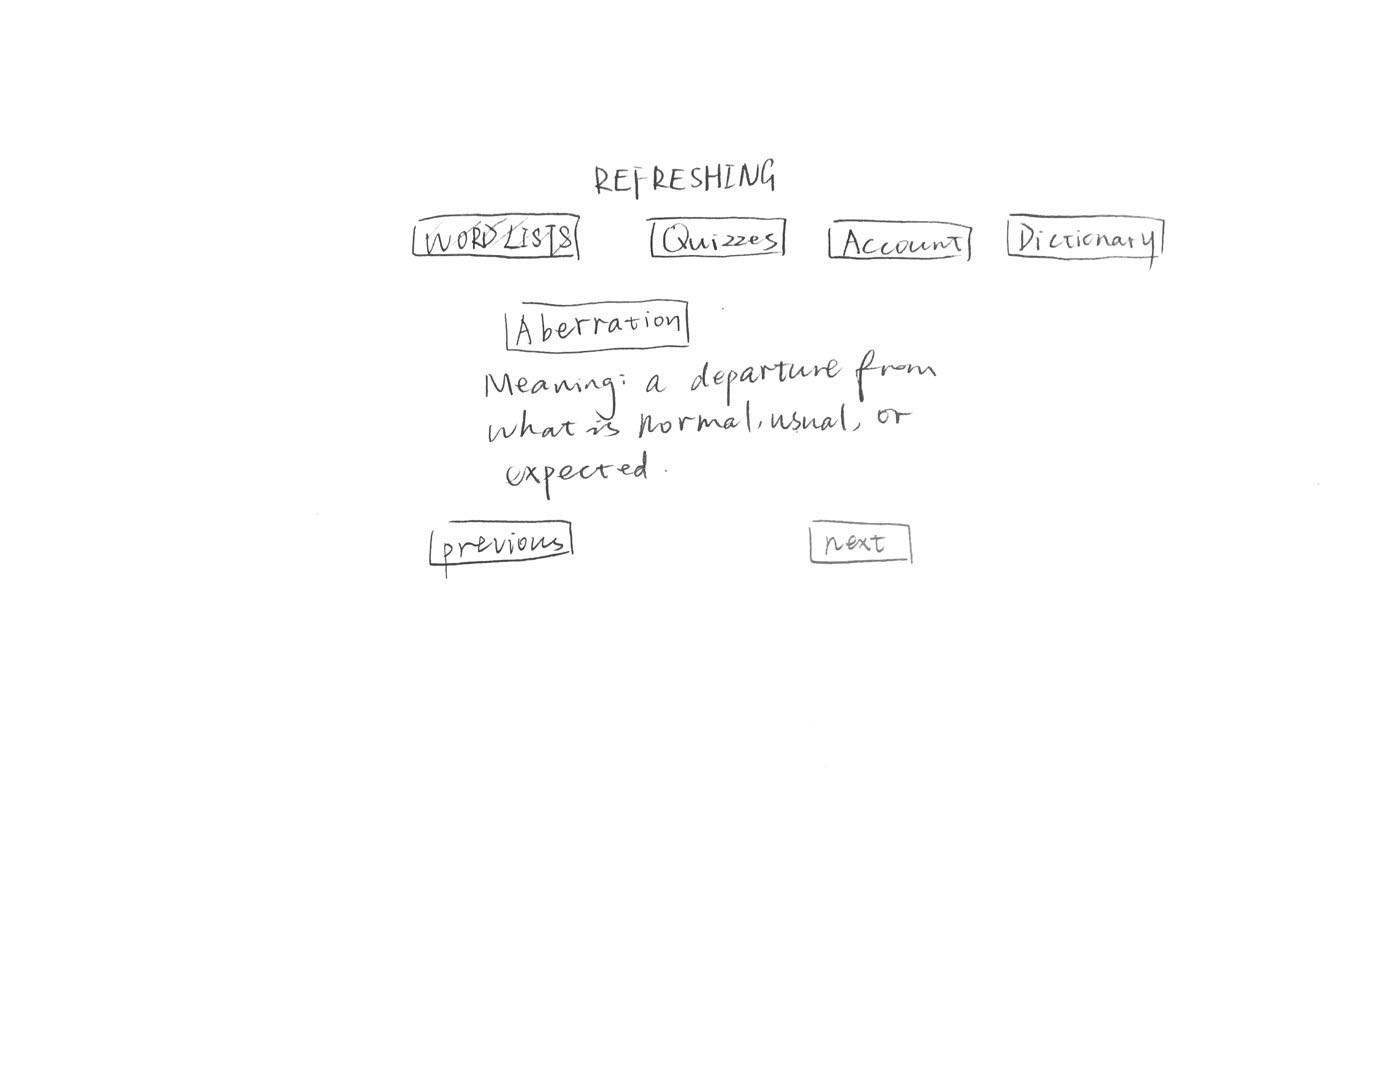 REFRESHING
WORD LISTS Quizzes Account Dictionary
Aberration
Meaning: a departure from
what is normal, usual, or
expected.
previous next